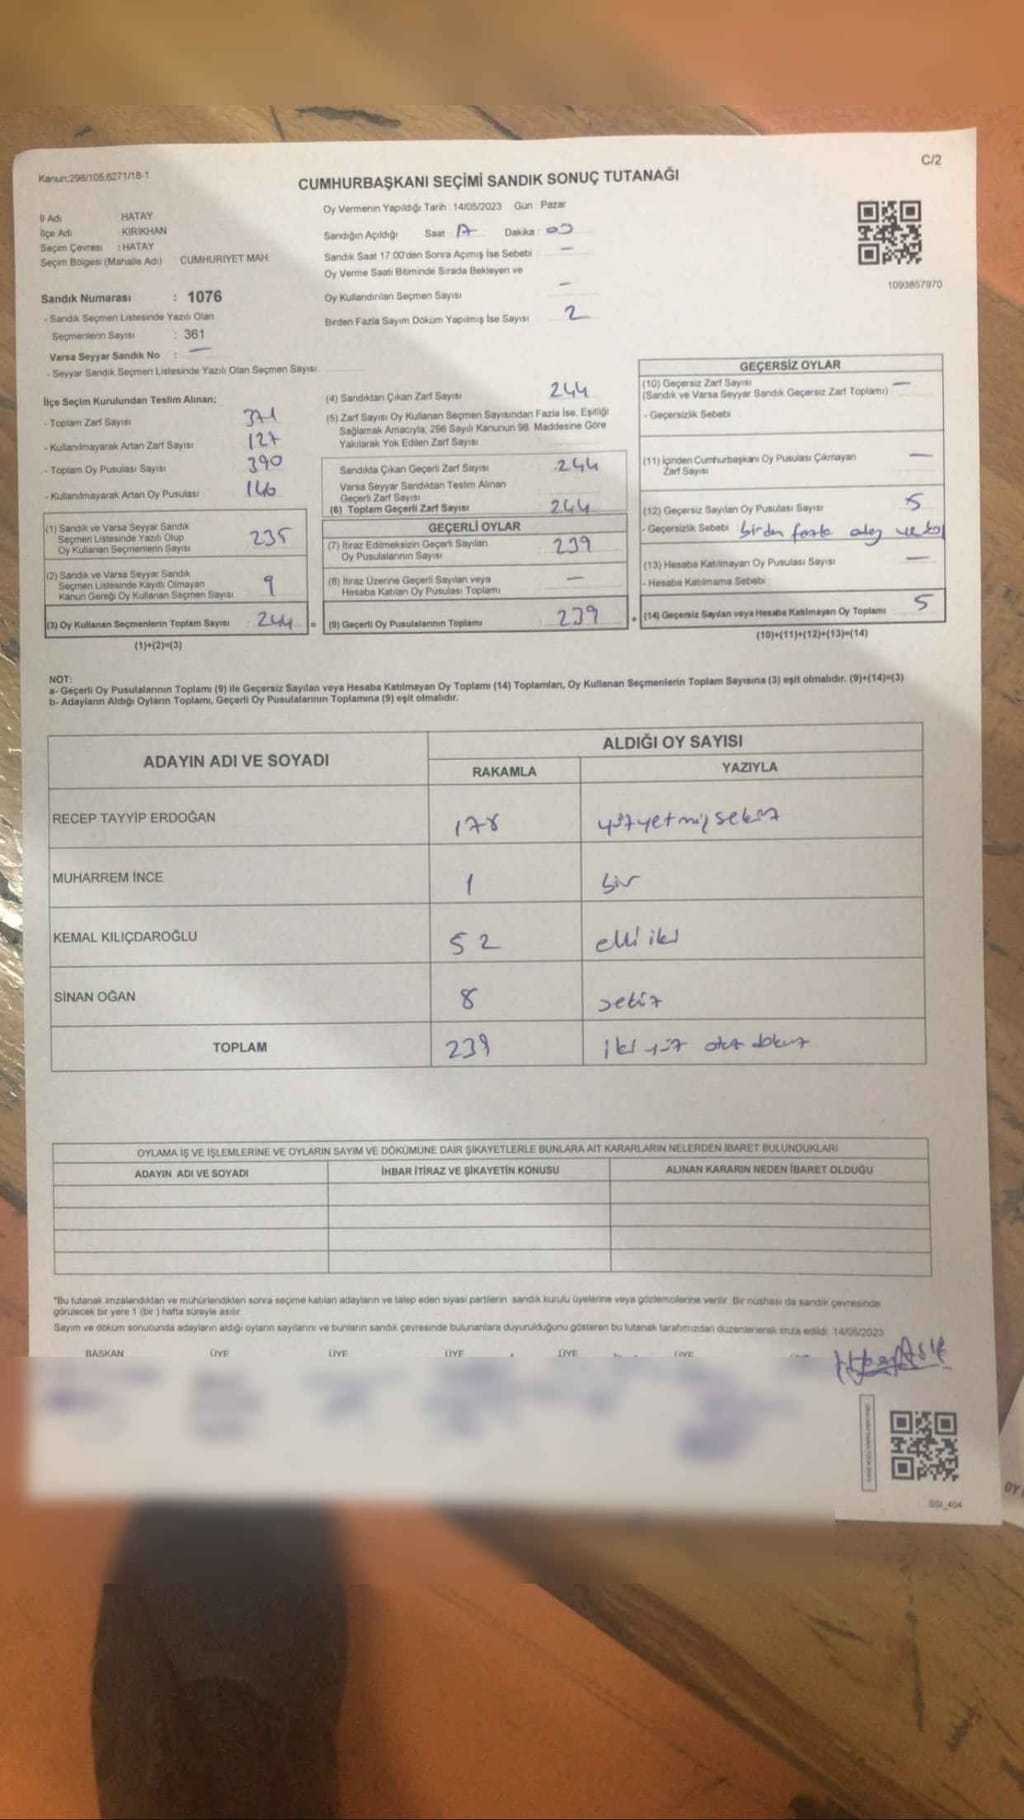 C/2
Kanun:298/105.6271/18-1
CUMHURBAŞKANI SEÇİMİ SANDIK SONUÇ TUTANAĞI
İl Adı HATAY
İlçe Adı KIRIKHAN
Seçim Çevresi : HATAY
Seçim Bölgesi (Mahalle Adı) CUMHURİYET MAH.
Oy Vermenin Yapıldığı Tarih : 14/05/2023 Gün : Pazar
Sandığın Açıldığı Saat 17 Dakika : 00
Sandık Saat 17:00'den Sonra Açımış İse Sebebi —
Oy Verme Saati Bitiminde Sırada Bekleyen ve
Oy Kullandırılan Seçmen Sayısı —
Birden Fazla Sayım Döküm Yapılmış İse Sayısı 2
1093857970
Sandık Numarası : 1076
- Sandık Seçmen Listesinde Yazılı Olan
Seçmenlerin Sayısı : 361
Varsa Seyyar Sandık No : —
- Seyyar Sandık Seçmen Listesinde Yazılı Olan Seçmen Sayısı
İlçe Seçim Kurulundan Teslim Alınan;
- Toplam Zarf Sayısı 371
- Kullanılmayarak Artan Zarf Sayısı 127
- Toplam Oy Pusulası Sayısı 390
- Kullanılmayarak Artan Oy Pusulası 146
(1) Sandık ve Varsa Seyyar Sandık
Seçmen Listesinde Yazılı Olup
Oy Kullanan Seçmenlerin Sayısı 235
(2) Sandık ve Varsa Seyyar Sandık
Seçmen Listesinde Kayıtlı Olmayan
Kanun Gereği Oy Kullanan Seçmen Sayısı 9
(3) Oy Kullanan Seçmenlerin Toplam Sayısı 244 =
(1)+(2)=(3)
(4) Sandıktan Çıkan Zarf Sayısı 244
(5) Zarf Sayısı Oy Kullanan Seçmen Sayısından Fazla İse, Eşitliği
Sağlamak Amacıyla, 298 Sayılı Kanunun 98. Maddesine Göre
Yakılarak Yok Edilen Zarf Sayısı
Sandıkta Çıkan Geçerli Zarf Sayısı 244
Varsa Seyyar Sandıktan Teslim Alınan
Geçerli Zarf Sayısı
(6) Toplam Geçerli Zarf Sayısı 244
GEÇERLİ OYLAR
(7) İtiraz Edilmeksizin Geçerli Sayılan
Oy Pusulalarının Sayısı 239
(8) İtiraz Üzerine Geçerli Sayılan veya
Hesaba Katılan Oy Pusulası Toplamı —
(9) Geçerli Oy Pusulalarının Toplamı 239 +
GEÇERSİZ OYLAR
(10) Geçersiz Zarf Sayısı —
(Sandık ve Varsa Seyyar Sandık Geçersiz Zarf Toplamı)
- Geçersizlik Sebebi
(11) İçinden Cumhurbaşkanı Oy Pusulası Çıkmayan
Zarf Sayısı —
(12) Geçersiz Sayılan Oy Pusulası Sayısı 5
- Geçersizlik Sebebi birden fazla
(13) Hesaba Katılmayan Oy Pusulası Sayısı —
- Hesaba Katılmama Sebebi
(14) Geçersiz Sayılan veya Hesaba Katılmayan Oy Toplamı 5
(10)+(11)+(12)+(13)=(14)
NOT:
a- Geçerli Oy Pusulalarının Toplamı (9) ile Geçersiz Sayılan veya Hesaba Katılmayan Oy Toplamı (14) Toplamları, Oy Kullanan Seçmenlerin Toplam Sayısına (3) eşit olmalıdır. (9)+(14)=(3)
b- Adayların Aldığı Oyların Toplamı, Geçerli Oy Pusulalarının Toplamına (9) eşit olmalıdır.
ADAYIN ADI VE SOYADI ALDIĞI OY SAYISI
RAKAMLA YAZIYLA
RECEP TAYYİP ERDOĞAN 178 yüzyetmişsekiz
MUHARREM İNCE 1 bir
KEMAL KILIÇDAROĞLU 52 elli iki
SİNAN OĞAN 8 sekiz
TOPLAM 239 iki yüz otuz dokuz
OYLAMA İŞ VE İŞLEMLERİNE VE OYLARIN SAYIM VE DÖKÜMÜNE DAİR ŞİKAYETLERLE BUNLARA AİT KARARLARIN NELERDEN İBARET BULUNDUKLARI
ADAYIN ADI VE SOYADI İHBAR İTİRAZ VE ŞİKAYETİN KONUSU ALINAN KARARIN NEDEN İBARET OLDUĞU
"Bu tutanak imzalandıktan ve mühürlendikten sonra seçime katılan adayların ve talep eden siyasi partilerin sandık kurulu üyelerine veya gözlemcilerine verilir. Bir nüshası da sandık çevresinde
görülecek bir yere 1 (bir ) hafta süreyle asılır
Sayım ve döküm sonucunda adayların aldığı oyların sayılarını ve bunların sandık çevresinde bulunanlara duyurulduğunu gösteren bu tutanak tarafımızdan düzenlenerek imza edildi. 14/05/2023
BAŞKAN ÜYE ÜYE ÜYE ÜYE ÜYE
SSI_404